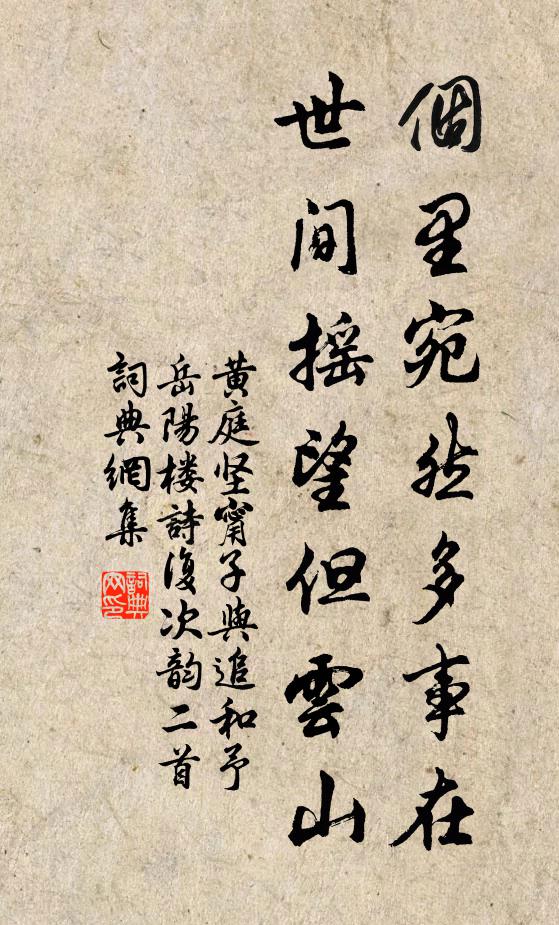 個里宛然多事在
世间摇望但雲山
黄庭坚甯子與追和予
岳陽楼詩復次韵二首
詞典網集
詞典网印